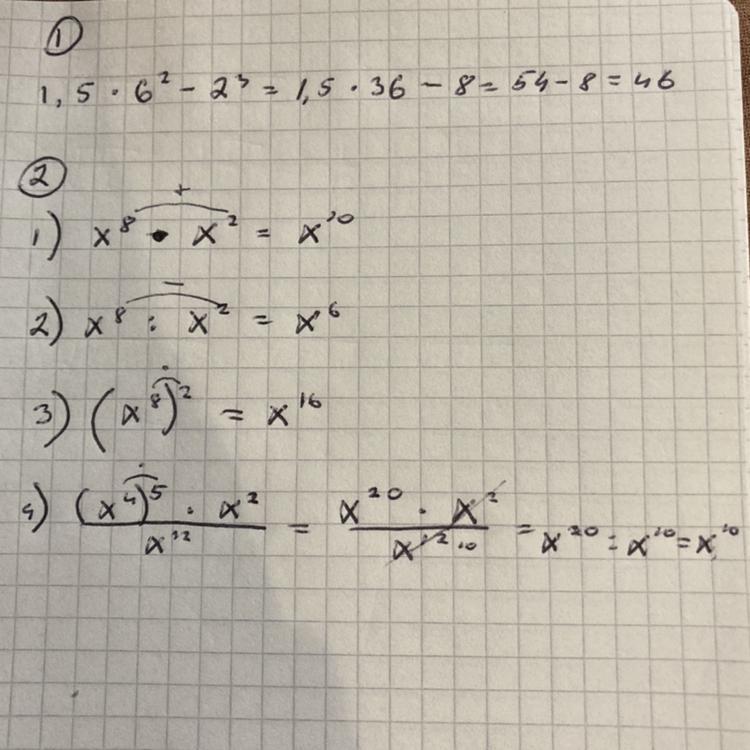 1
1,5 · 6² - 2³ = 1,5 · 36 - 8 = 54 - 8 = 46
2
+
1) x⁸ · x² = x¹⁰
−
2) x⁸ : x² = x⁶
·
3) (x⁸)² = x¹⁶
·
4) (x⁴)⁵ · x² / x¹² = x²⁰ · x² / x¹² ¹⁰ = x²⁰ : x¹⁰ = x¹⁰